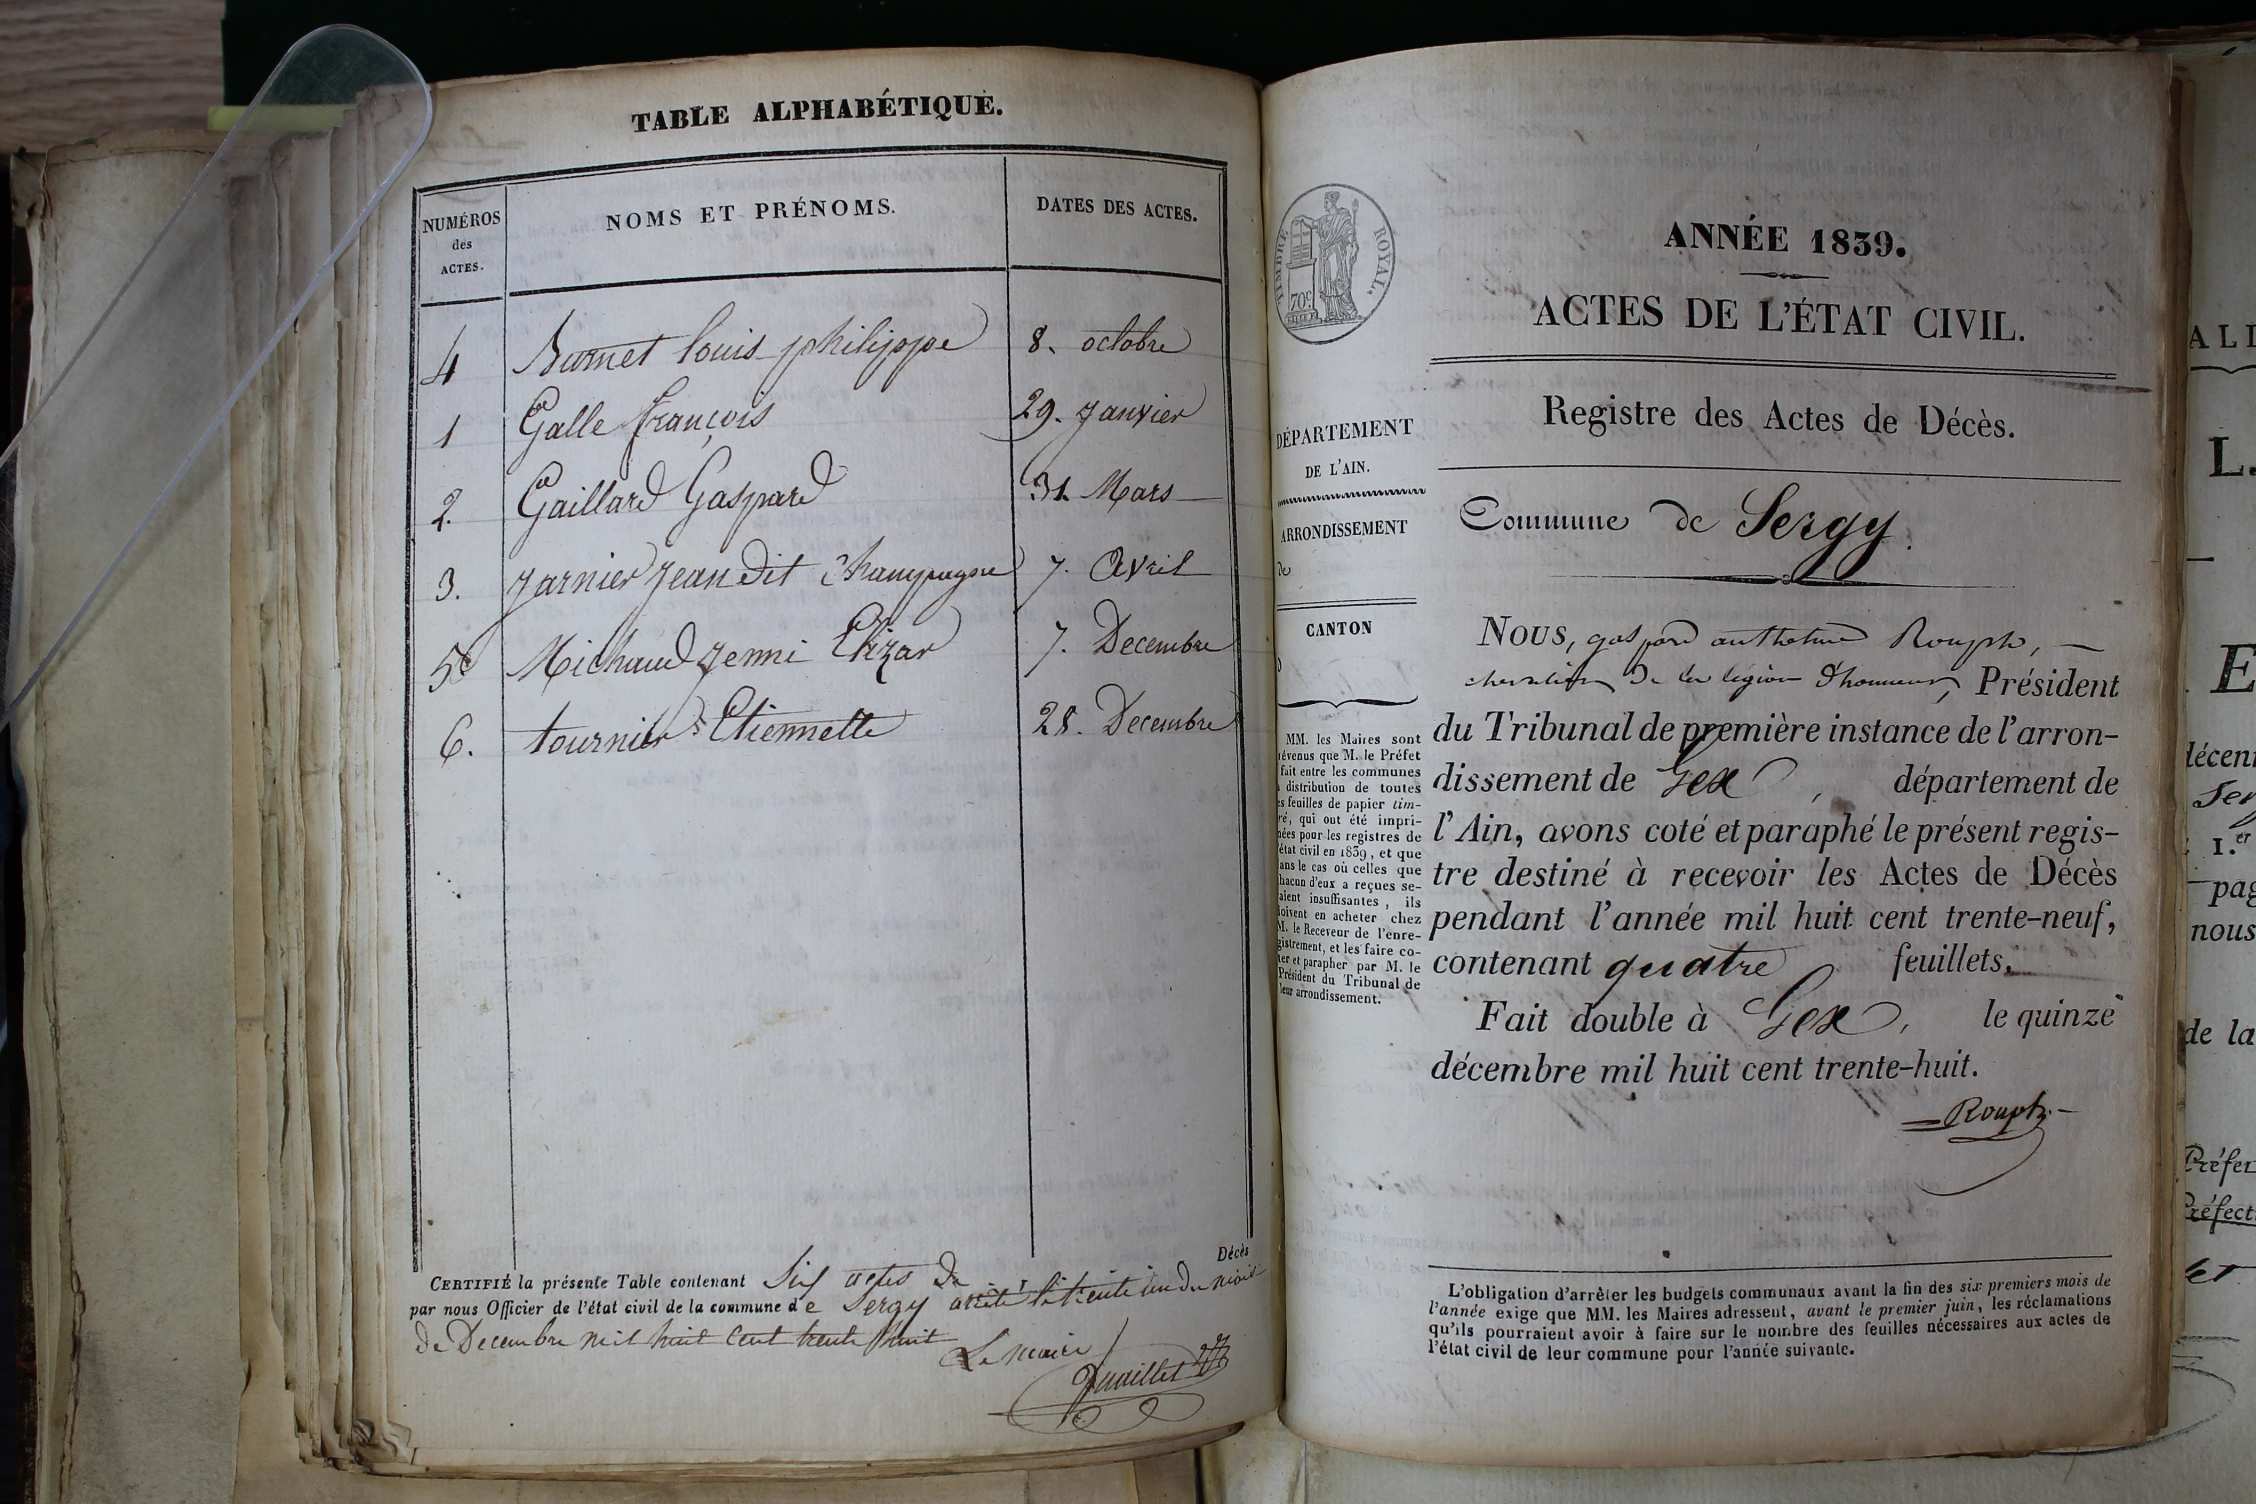 TABLE ALPHABÉTIQUE.
NUMÉROS
des
ACTES.
NOMS ET PRÉNOMS.
DATES DES ACTES.
4 Burnet louis philippe 8. octobre
1 Galle françois 29. Janvier
2. Gaillard Gaspard 31. Mars
3. Jarnier Jean dit Champagne 7. Avril
5e Michaud Jenni Elizar 7. Decembre
6. tournier Etiennette 28. Decembre
Décès
CERTIFIÉ la présente Table contenant Six actes de
par nous Officier de l'état civil de la commune de Sergy arrêté le trente un du mois
de Decembre mil huit cent trente huit
Le maire
TIMBRE ROYAL.
70c.
ANNÉE 1839.
ACTES DE L'ÉTAT CIVIL.
Registre des Actes de Décès.
DÉPARTEMENT
DE L'AIN.
ARRONDISSEMENT
de
CANTON
Commune de Sergy.
MM. les Maires sont
prévenus que M. le Préfet
fait entre les communes
distribution de toutes
les feuilles de papier tim-
bré, qui ont été impri-
mées pour les registres de
état civil en 1839, et que
dans le cas où celles que
chacun d'eux a reçues se-
raient insuffisantes, ils
doivent en acheter chez
M. le Receveur de l'enre-
gistrement, et les faire co-
ter et parapher par M. le
Président du Tribunal de
leur arrondissement.
NOUS, gaspard anthelme Rouph,
chevalier de la légion d'honneur, Président
du Tribunal de première instance de l'arron-
dissement de Gex, département de
l'Ain, avons coté et paraphé le présent regis-
tre destiné à recevoir les Actes de Décès
pendant l'année mil huit cent trente-neuf,
contenant quatre feuillets.
Fait double à Gex, le quinze
décembre mil huit cent trente-huit.
Rouph
L'obligation d'arrêter les budgets communaux avant la fin des six premiers mois de
l'année exige que MM. les Maires adressent, avant le premier juin, les réclamations
qu'ils pourraient avoir à faire sur le nombre des feuilles nécessaires aux actes de
l'état civil de leur commune pour l'année suivante.
ALL
L.
E
décem
Ser
1.er
pag
nous
de la
Préfe
Préfect